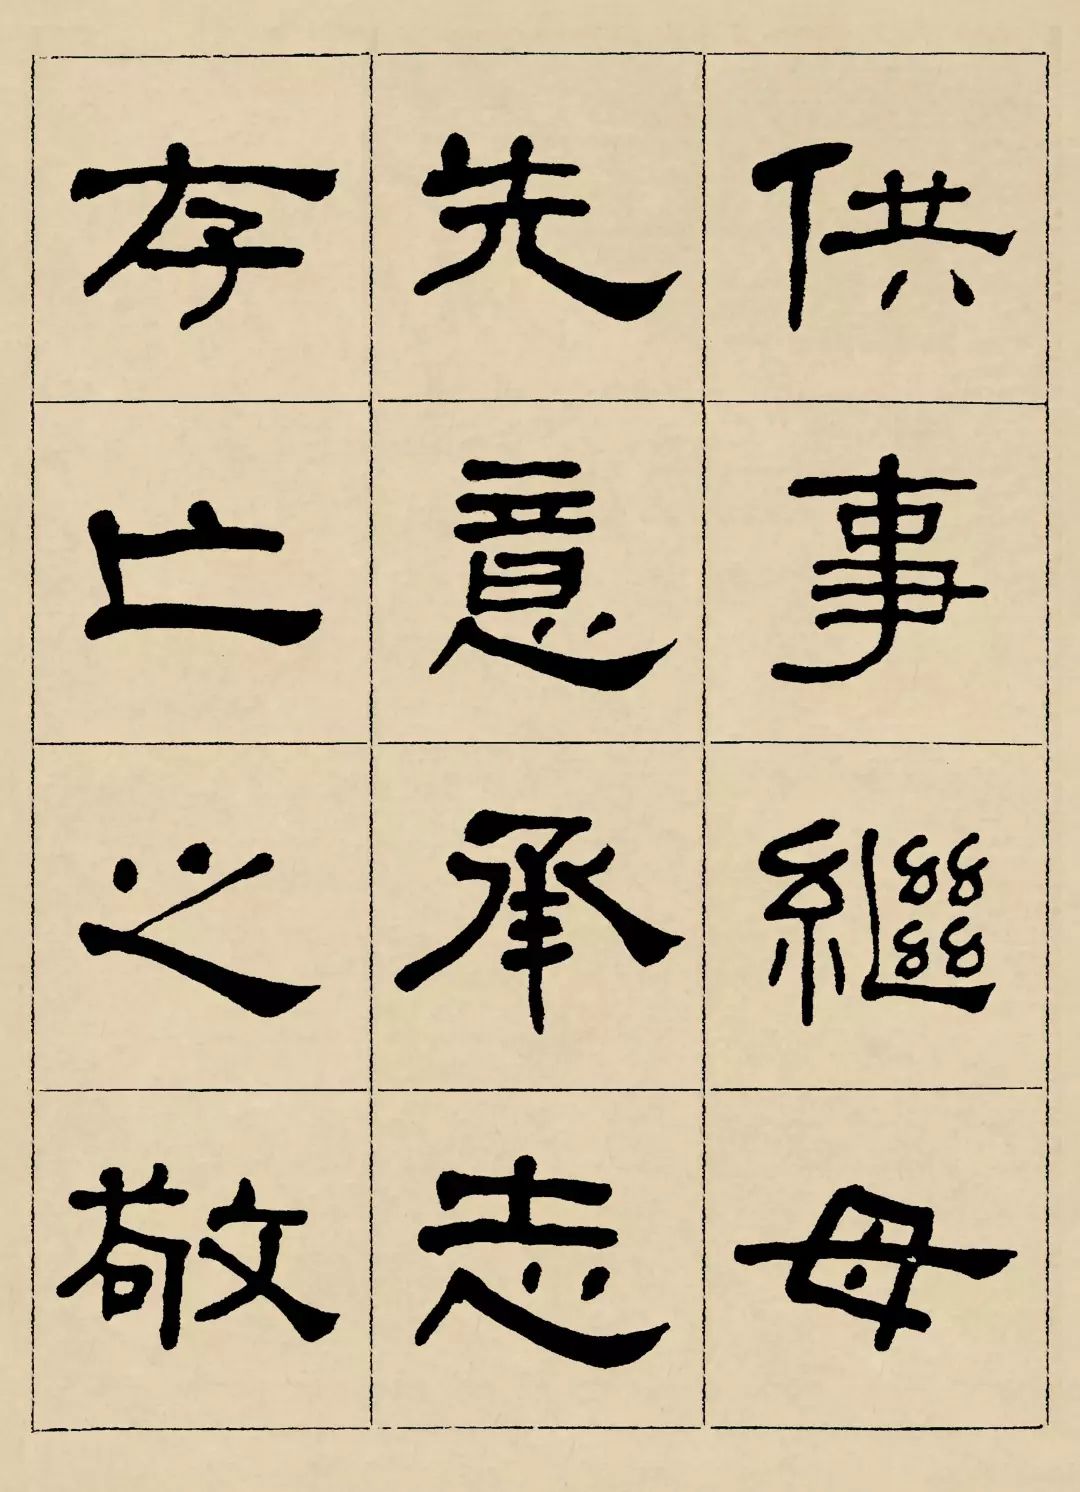 供事繼母
先意承志
存亡之敬